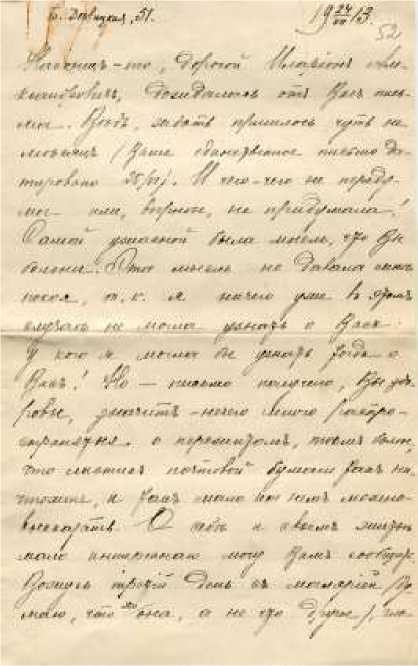 Б. Донецкая, 51.
19 24/VII 13.
52
Наконец-то, дорогой Иларіон Але-
ксандровичъ, дождалась отъ Васъ пись-
ма. Вѣдь, ждать пришлось чуть не
мѣсяцъ (Ваше единственное письмо да-
тировано 25/VI). И чего-чего не переду-
мала или, вѣрнѣе, не придумала!
Самой ужасной была мысль, что Вы
больны. Эта мысль не давала мнѣ
покоя, т. к. я ничего уже въ этомъ
случаѣ не могла узнать о Васъ.
У кого я могла бы узнать тогда о
Васъ! Но — письмо получено, Вы здо-
ровы, значитъ - нечего много распро-
страняться о пережитомъ, тѣмъ болѣе,
что листикъ почтовой бумаги такъ ни-
чтоженъ, и такъ мало на немъ можно
высказать. О себѣ и своемъ житьѣ
мало интереснаго могу Вамъ сообщить.
Вожусь третій день съ маляріей (ду-
маю, что это она, а не что другое),